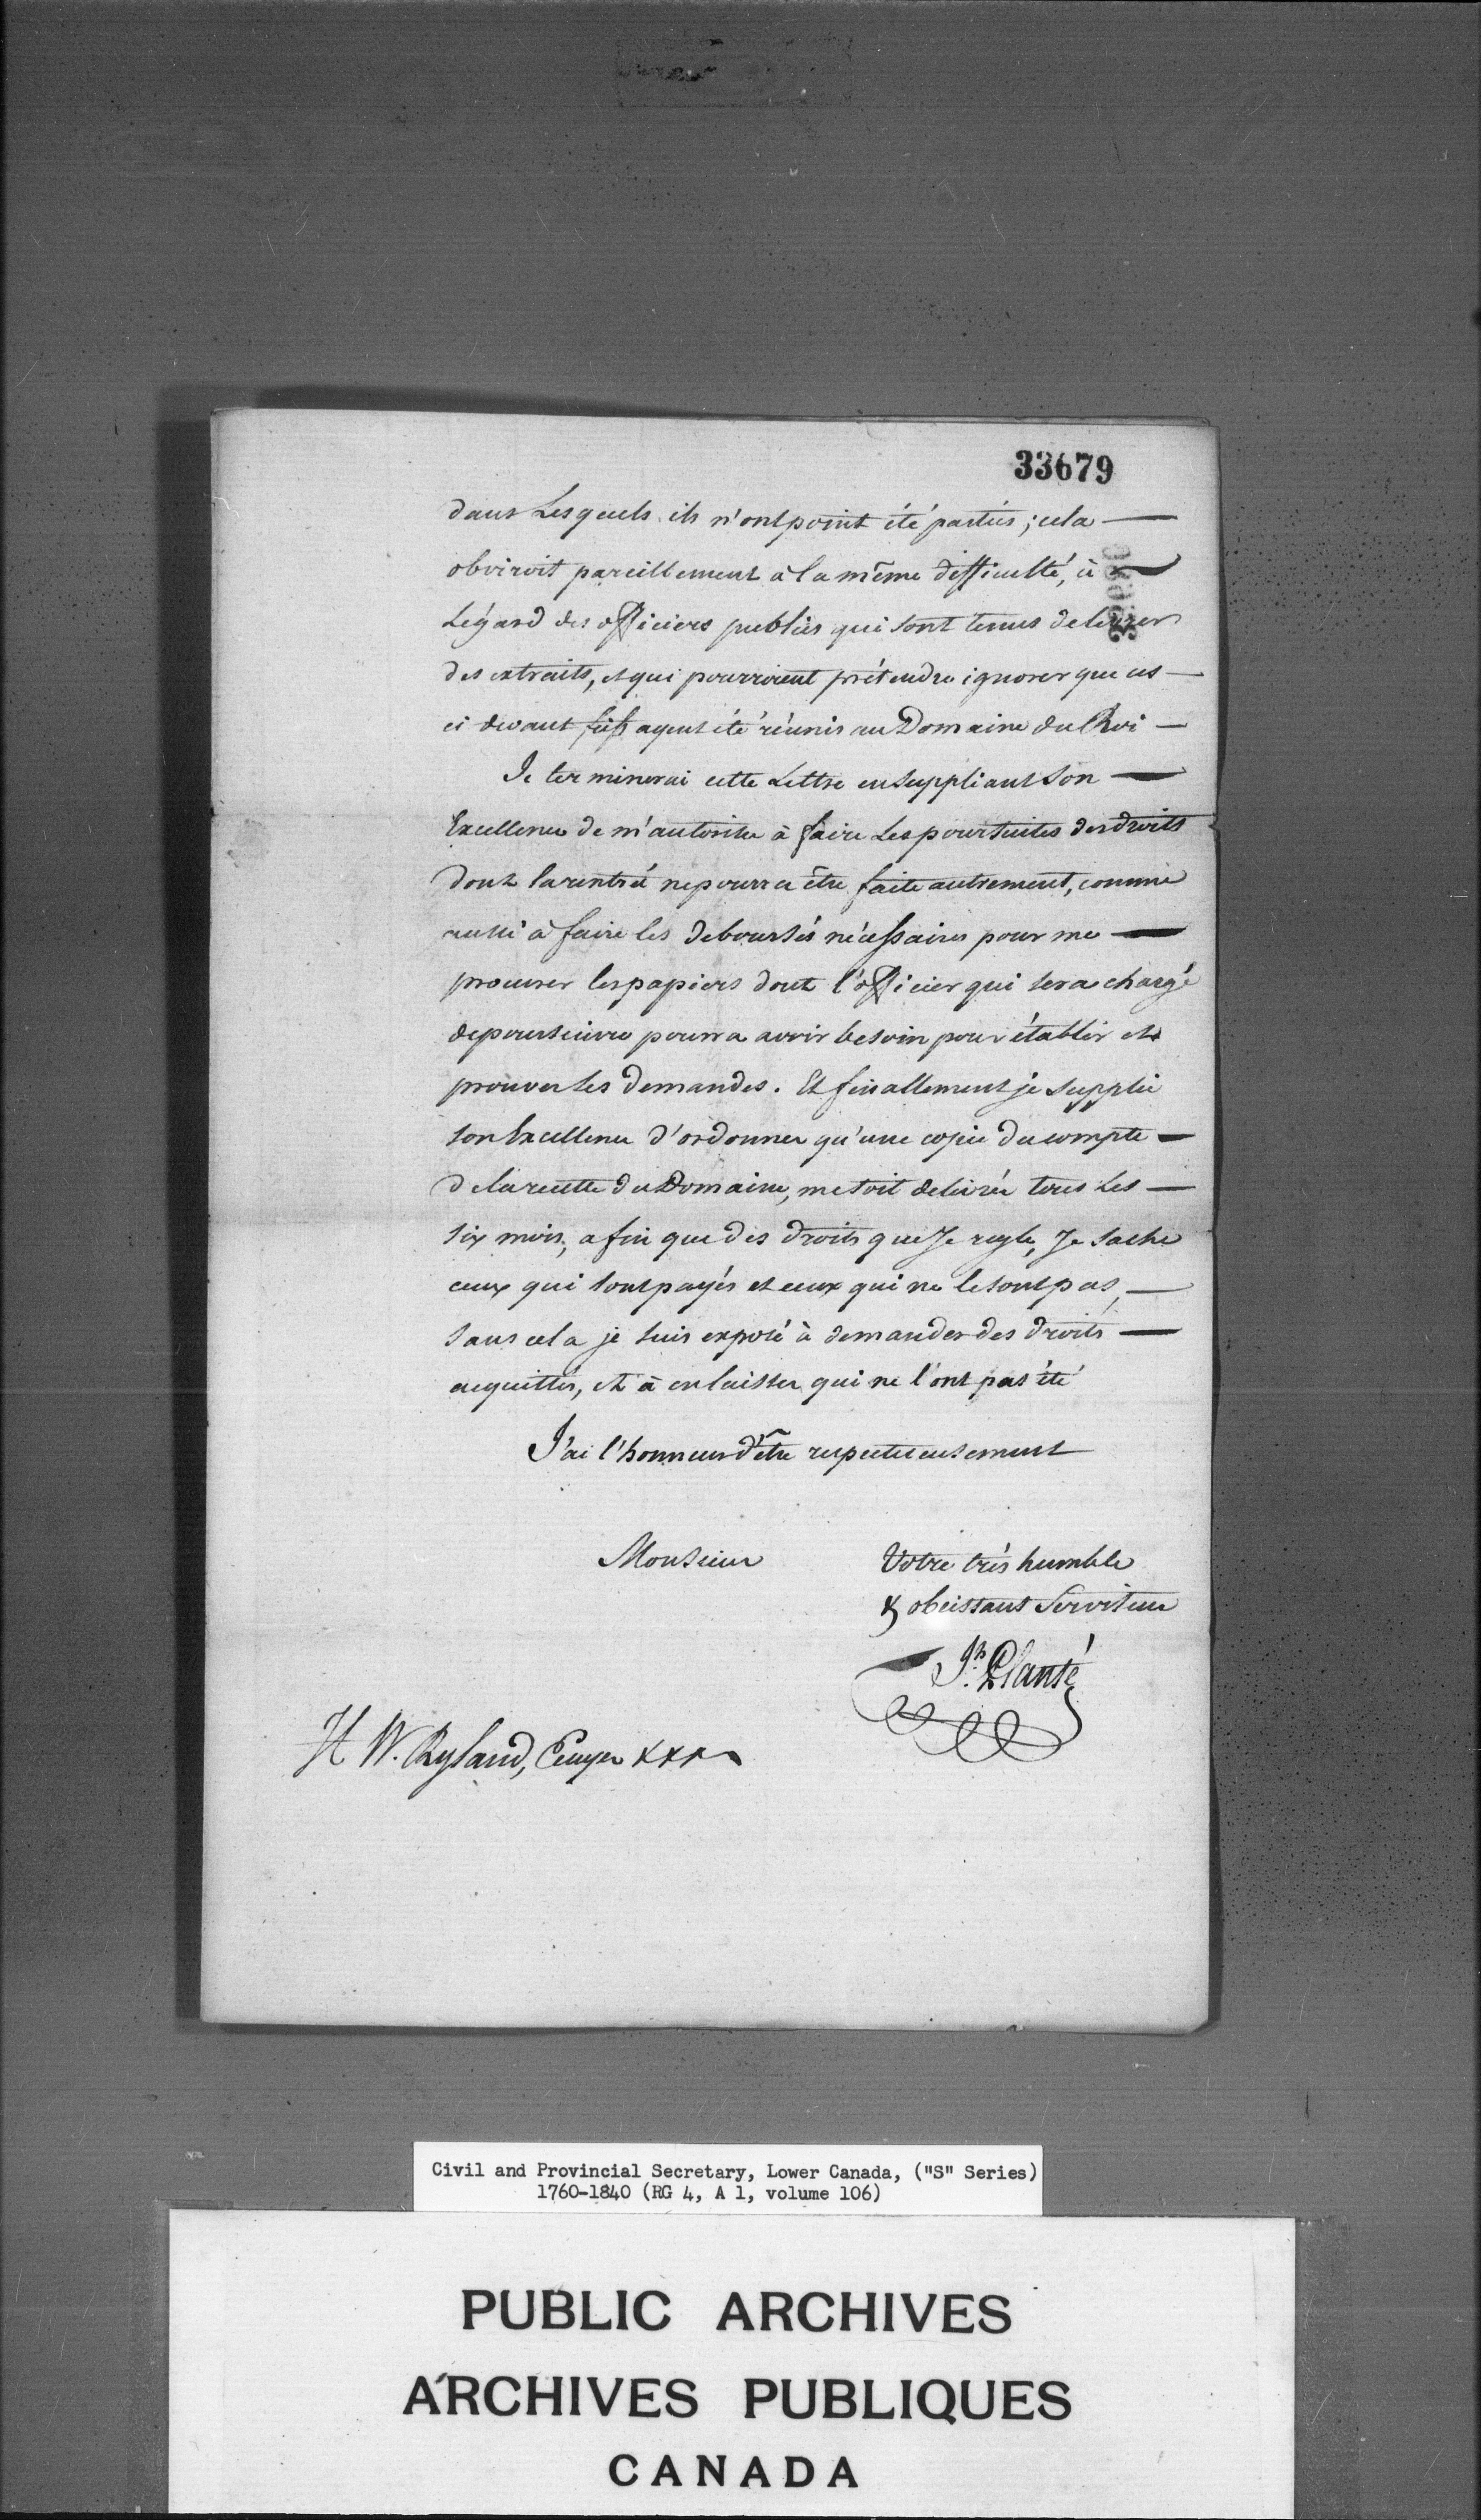 33679
dans Lesquels ils n'ont point été parties; cela —
obviroit pareillement à la même difficulté, à —
Légard des officiers publics qui sont tenus de livrer
des extraits, et qui pourroient prétendre ignorer que ces —
ci devant fiefs ayent été réunis au Domaine du Roi —
Je terminerai cette Lettre en suppliant Son —
Excellence de m'autoriser à faire Les poursuites des droits
dont la rentrée ne pourra être faite autrement, comme
aussi à faire les deboursés nécessaires pour me —
procurer les papiers dont l'officier qui sera chargé
de poursuivre pourra avoir besoin pour établir et
prouver ses demandes. Et finallement je supplie
son Excellence d'ordonner qu'une copie du compte —
de la recette du Domaine, me soit delivrée tous Les —
six mois, afin que des droits que Je regle, Je sache
ceux qui sont payés et ceux qui ne le sont pas, —
sans cela je suis exposé à demander des droits —
acquittés, et à en laisser qui ne l'ont pas été
J'ai l'honneur d'être respectueusement
Monsieur
Votre très humble
& obeissant Serviteur
Jh. Planté
H W. Ryland, Ecuyer xxx
Civil and Provincial Secretary, Lower Canada, ("S" Series)
1760-1840 (RG 4, A 1, volume 106)
PUBLIC ARCHIVES
ARCHIVES PUBLIQUES
CANADA